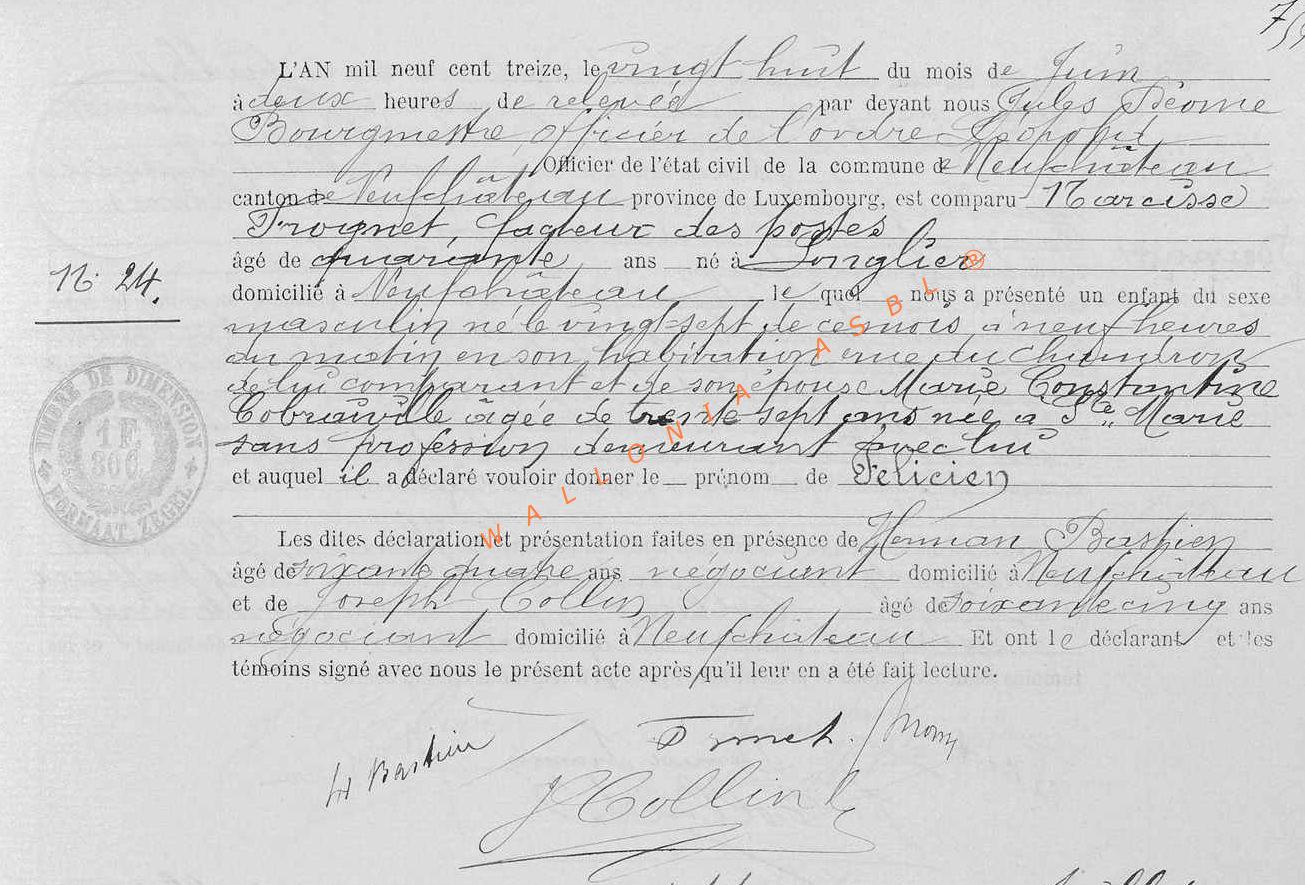 L'AN mil neuf cent treize, le vingt huit du mois de Juin
à deux heures de relevée par devant nous Jules
Bourgmestre, officier de l'ordre Léopold
Officier de l'état civil de la commune de Neufchâteau
canton de Neufchâteau province de Luxembourg, est comparu Narcisse
Froignet, facteur des postes
âgé de quarante ans né à Longlier
N° 24.
domicilié à Neufchâteau lequel nous a présenté un enfant du sexe
masculin né le vingt-sept de ce mois à neuf heures
du matin en son habitation rue du Chaudron
de lui comparant et de son épouse Marie Constantine
âgée de trente sept ans née à Ste Marie
sans profession demeurant avec lui
et auquel il a déclaré vouloir donner le prénom de Félicien
Les dites déclaration et présentation faites en présence de Herman Bastien
âgé de soixante quatre ans négociant domicilié à Neufchâteau
et de Joseph Collin âgé de soixante cinq ans
négociant domicilié à Neufchâteau Et ont le déclarant et les
témoins signé avec nous le présent acte après qu'il leur en a été fait lecture.
H Bastien
J Collin
TIMBRE DE DIMENSION
1 F.
30 C.
FORMAAT ZEGEL
WALLONIA ASBL ®